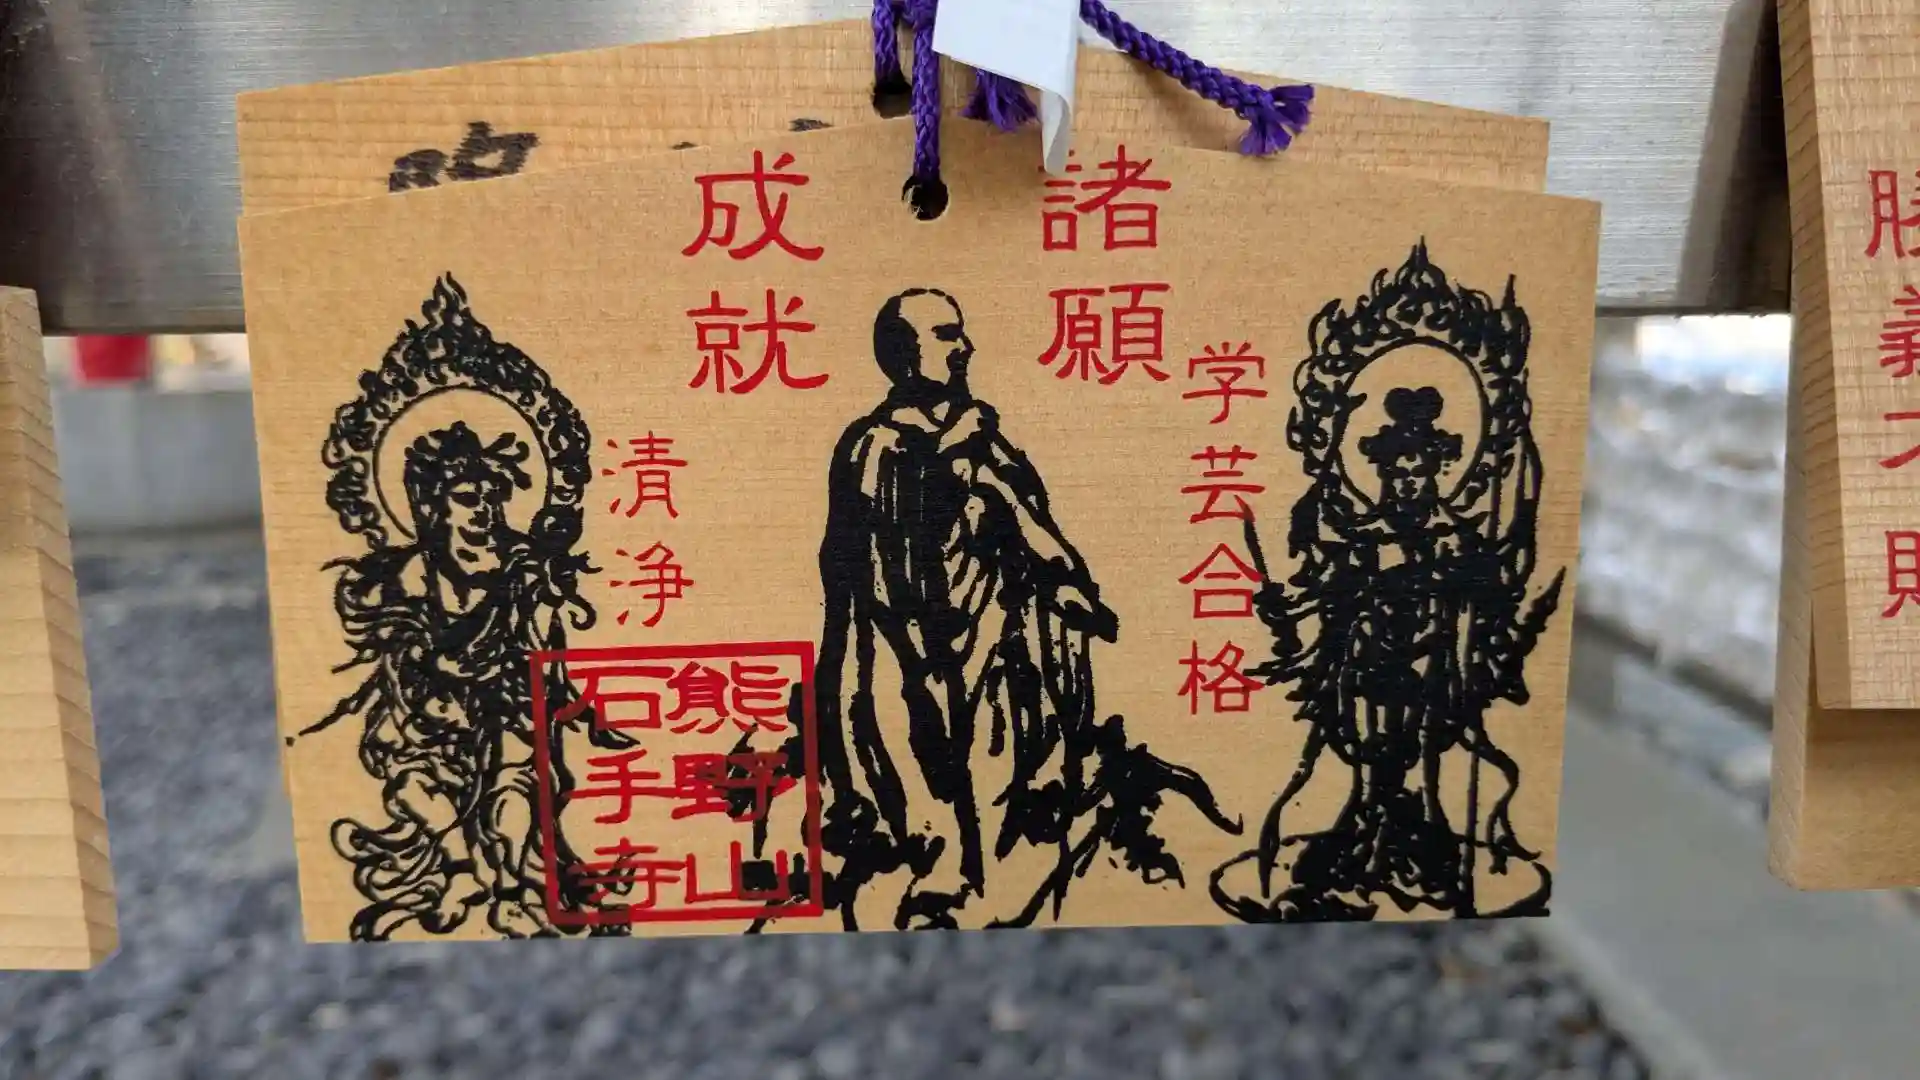 諸願
成就
学芸合格
清浄
熊野山
石手寺